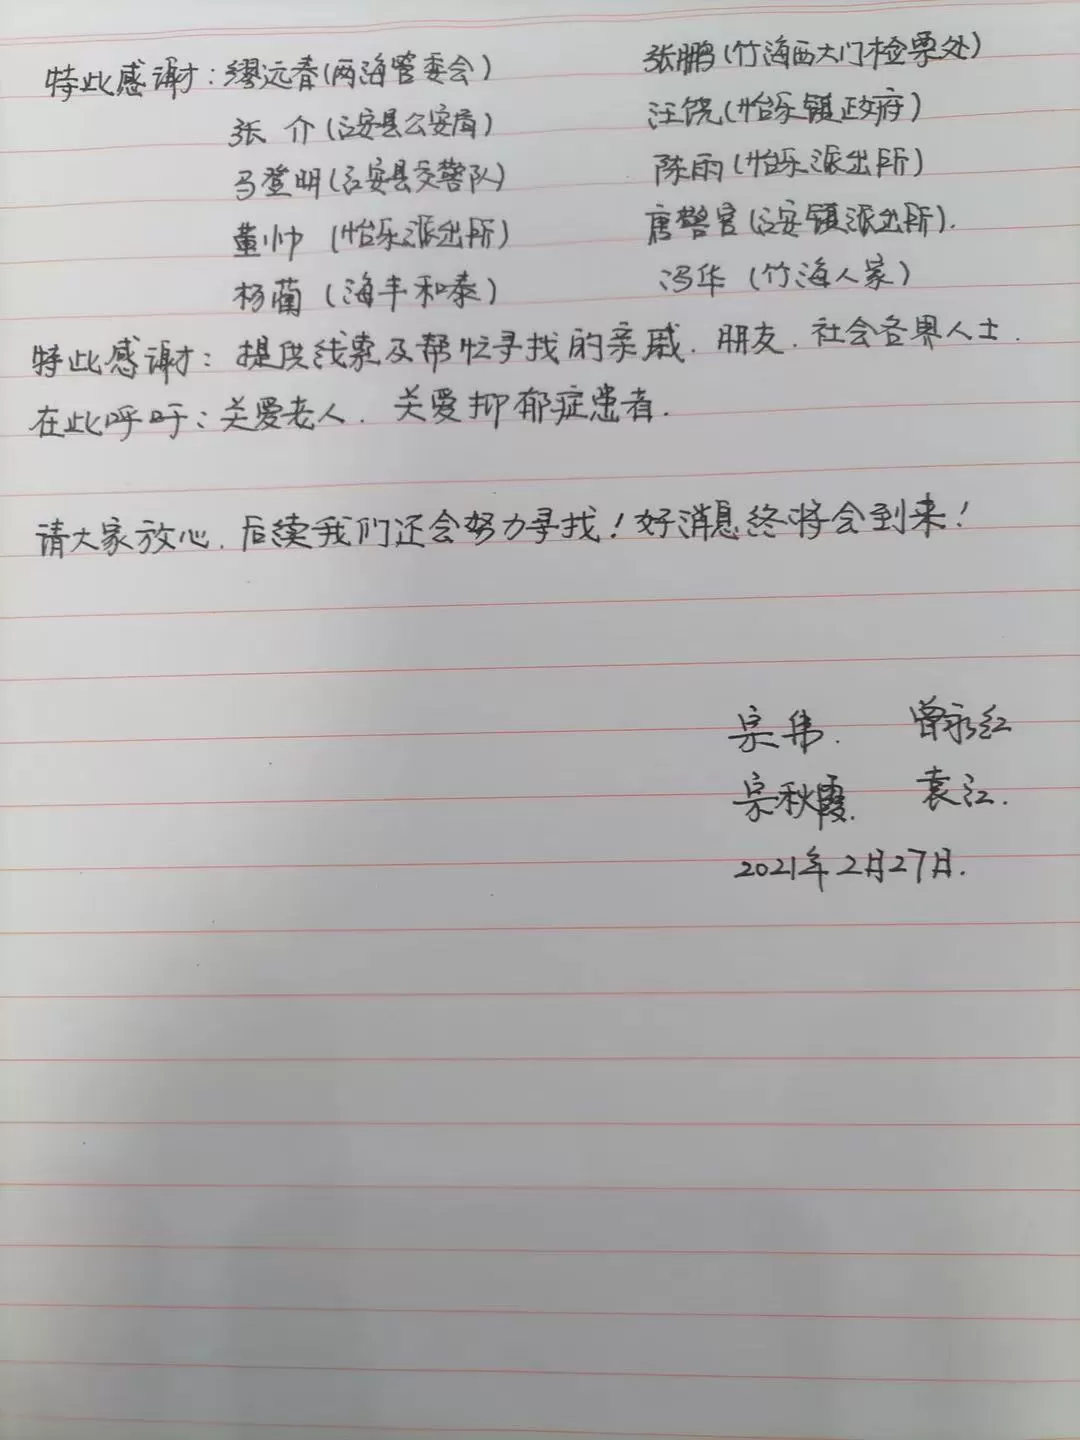 特此感谢：缪远春(两海管委会) 张鹏(竹海西大门检票处)
张介(江安县公安局) 汪饶(怡乐镇政府)
马登明(江安县交警队) 陈雨(怡乐派出所)
董帅(怡乐派出所) 唐警官(江安镇派出所).
杨蔺(海丰和泰) 冯华(竹海人家)
特此感谢：提供线索及帮忙寻找的亲戚.朋友.社会各界人士.
在此呼吁：关爱老人.关爱抑郁症患者.
请大家放心.后续我们还会努力寻找！好消息终将会到来！
宗伟. 曾永红
宗秋霞. 袁江.
2021年2月27日.